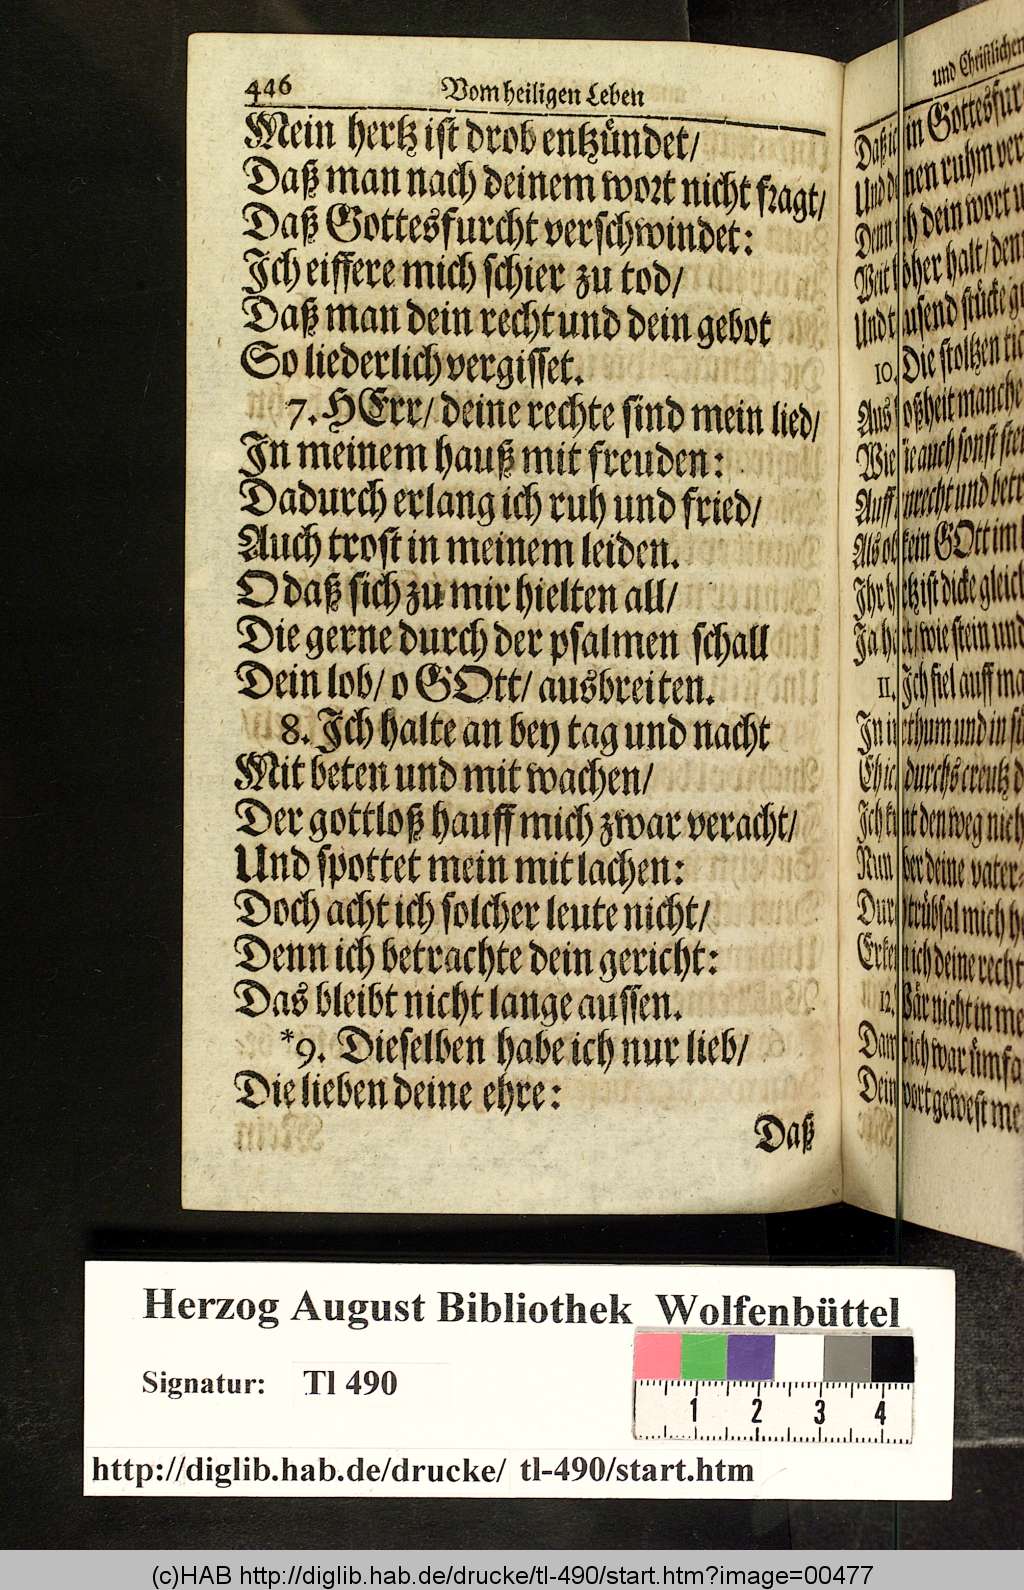 446 Vom heiligen Leben
Mein hertz ist drob entzündet/
Daß man nach deinem wort nicht fragt/
Daß Gottesfurcht verschwindet:
Ich eiffere mich schier zu tod/
Daß man dein recht und dein gebot
So liederlich vergisset.
7. HErr/ deine rechte sind mein lied/
In meinem hauß mit freuden:
Dadurch erlang ich ruh und fried/
Auch trost in meinem leiden.
O daß sich zu mir hielten all/
Die gerne durch der psalmen schall
Dein lob/ o GOtt/ ausbreiten.
8. Ich halte an bey tag und nacht
Mit beten und mit wachen/
Der gottloß hauff mich zwar veracht/
Und spottet mein mit lachen:
Doch acht ich solcher leute nicht/
Denn ich betrachte dein gericht:
Das bleibt nicht lange aussen.
*9. Dieselben habe ich nur lieb/
Die lieben deine ehre:
Daß
und Christlichen
in Gottesfur
nen ruhm ver
dein wort u
her halt/ den
Und tausend stücke g
10. Die stoltzen
Boßheit manche
Wie sie auch sonst
Auff unrecht und betr
Als ob kein GOtt im
Ihr hertz ist dicke gleich
Ja hart/ wie stein und
11. Ich fiel auff ma
In irrthum und in
Eh ich durchs creutz d
Ich kunt den weg nich
Nun aber deine vater-
Durch trübsal mich
Erkenn ich deine recht
12. Wär nicht in me
Damit ich war ümfa
Dein wort gewest me
Herzog August Bibliothek Wolfenbüttel
Signatur: Tl 490
1 2 3 4
http://diglib.hab.de/drucke/ tl-490/start.htm
(c)HAB http://diglib.hab.de/drucke/tl-490/start.htm?image=00477